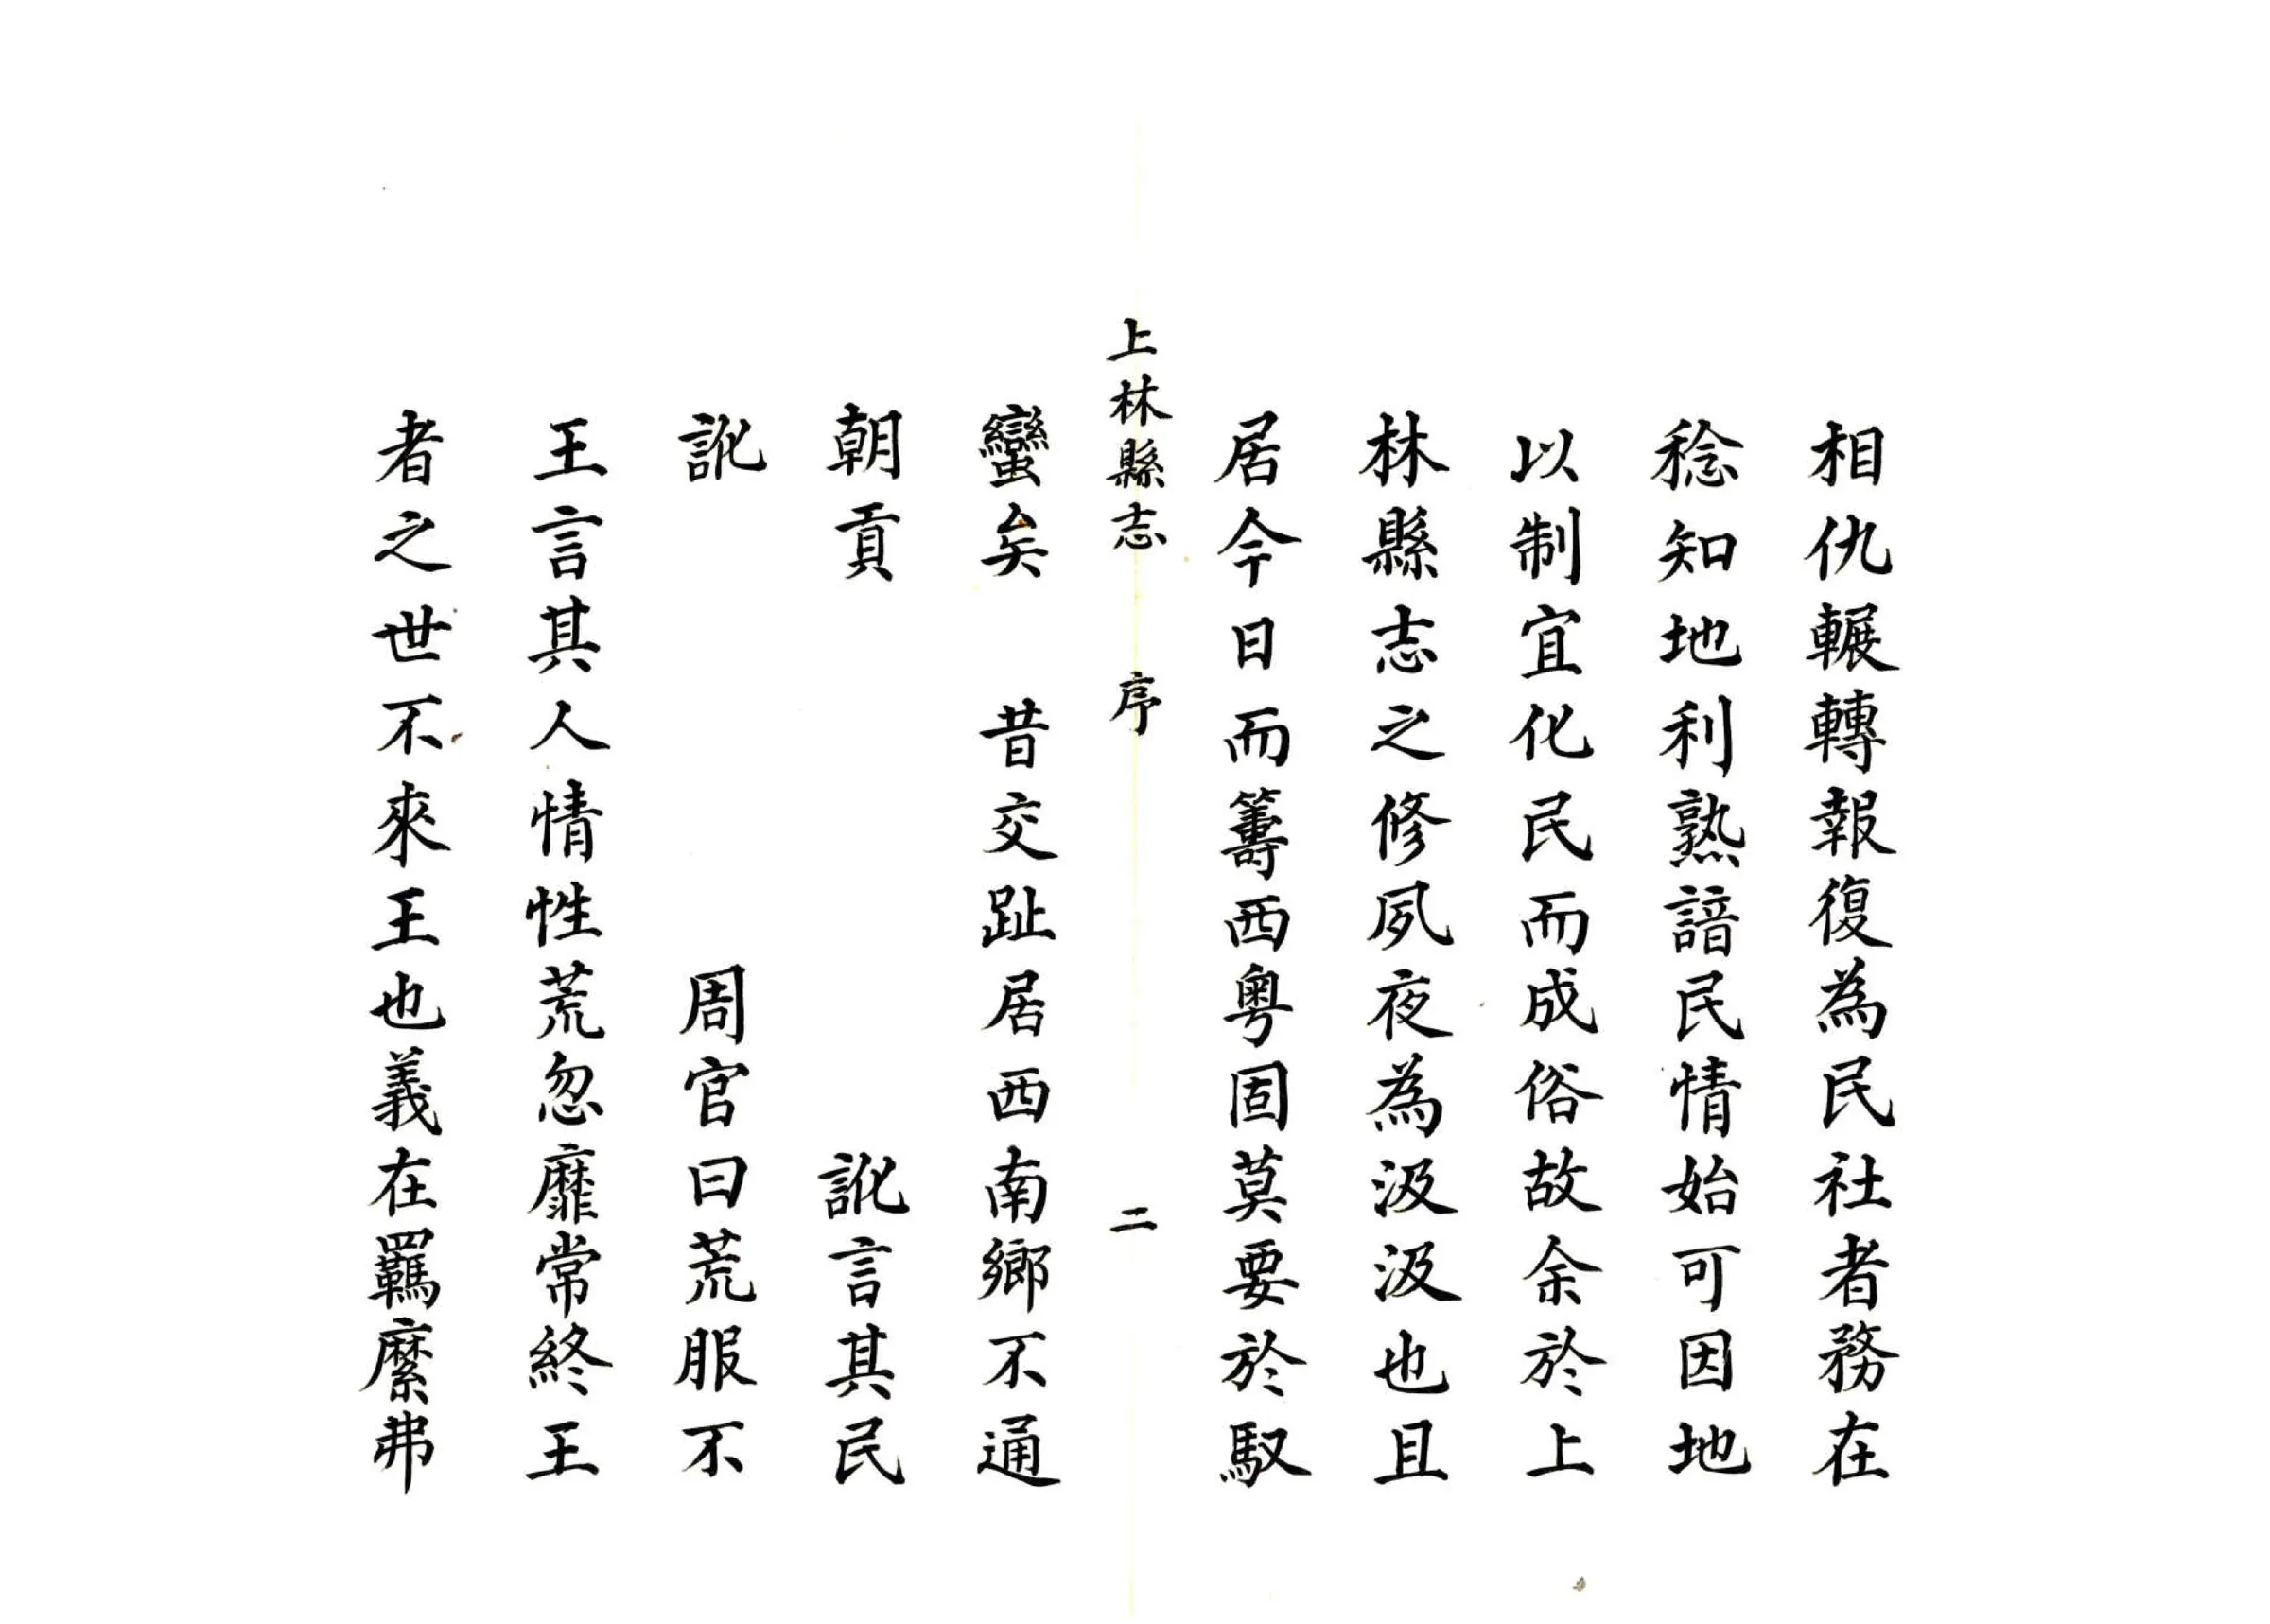 相仇輾轉報復為民社者務在
稔知地利熟諳民情始可因地
以制宜化民而成俗故余於上
林縣志之修夙夜為汲汲也且
居今日而籌西粵固莫要於馭
上林縣志 序 二
蠻矣 昔交趾居西南鄉不通
朝貢 訛言其民
訛 周官曰荒服不
王言其人情性荒忽靡常終王
者之世不來王也義在羈縻弗